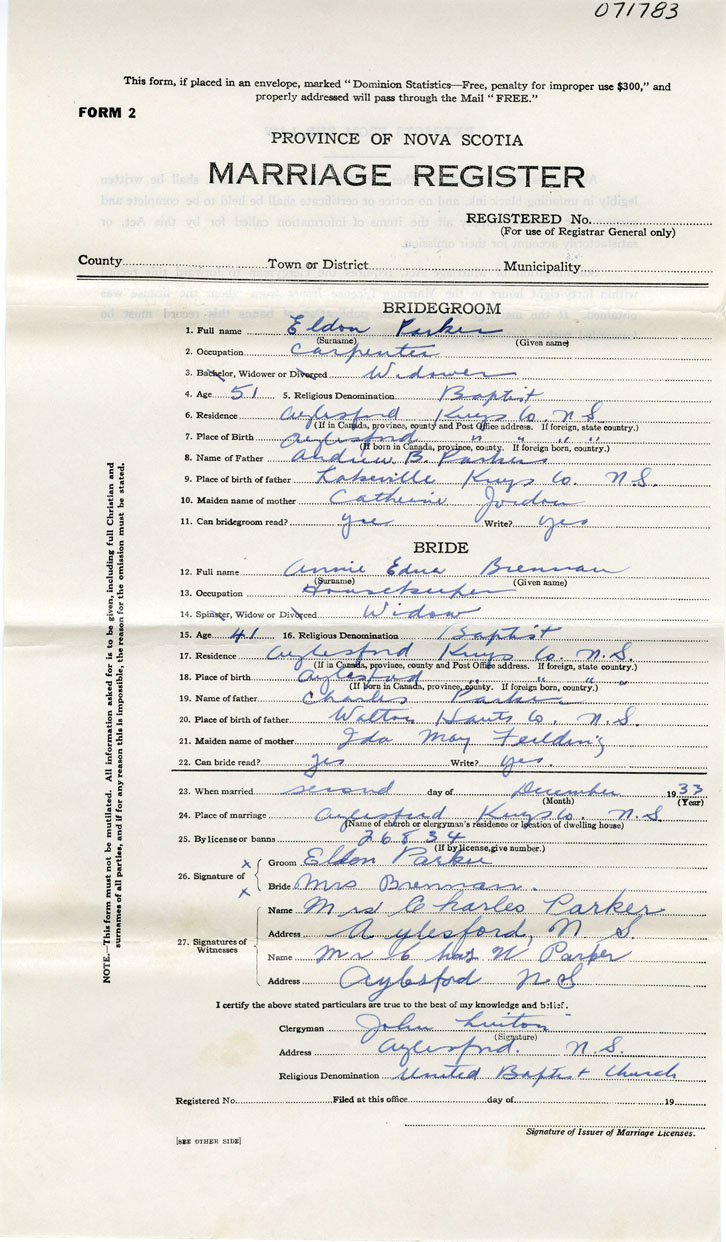 071783
This form, if placed in an envelope, marked "Dominion Statistics—Free, penalty for improper use $300," and
properly addressed will pass through the Mail "FREE."
FORM 2
PROVINCE OF NOVA SCOTIA
MARRIAGE REGISTER
REGISTERED No.
(For use of Registrar General only)
County Town or District Municipality
BRIDEGROOM
1. Full name Eldon Parker
(Surname) (Given name)
2. Occupation Carpenter
3. Bachelor, Widower or Divorced Widower
4. Age 51 5. Religious Denomination Baptist
6. Residence Aylesford Kings Co N S
(If in Canada, province, county and Post Office address. If foreign, state country.)
7. Place of Birth Aylesford " " " "
(If born in Canada, province, county. If foreign born, country.)
8. Name of Father Andrew B. Parker
9. Place of birth of father Lakeville Kings Co. N S.
10. Maiden name of mother Catherine Jordon
11. Can bridegroom read? yes Write? yes
BRIDE
12. Full name Annie Edna Brennan
(Surname) (Given name)
13. Occupation Housekeeper
14. Spinster, Widow or Divorced Widow
15. Age 41 16. Religious Denomination Baptist
17. Residence Aylesford Kings Co. N.S.
(If in Canada, province, county and Post Office address. If foreign, state country.)
18. Place of birth Aylesford " " "
(If born in Canada, province, county. If foreign born, country.)
19. Name of father Charles Parker
20. Place of birth of father Walton Hants Co. N.S.
21. Maiden name of mother Ida May Feilding
22. Can bride read? yes Write? yes.
23. When married second day of December 1933
(Month) (Year)
24. Place of marriage Aylesford Kings Co. N.S
(Name of church or clergyman's residence or location of dwelling house)
25. By license or banns 26834
(If by license, give number.)
26. Signature of
x Groom Eldon Parker
x Bride Mrs Brennan.
27. Signatures of Witnesses
Name Mrs Charles Parker
Address Aylesford, N S.
Name Mr Chas W Parker
Address Aylesford N S
I certify the above stated particulars are true to the best of my knowledge and belief.
Clergyman John
(Signature)
Address Aylesford. N.S.
Religious Denomination United Baptist Church
Registered No. Filed at this office day of 19
Signature of Issuer of Marriage Licenses.
[SEE OTHER SIDE]
NOTE.—This form must not be mutilated. All information asked for is to be given, including full Christian and
surnames of all parties, and if for any reason this is impossible, the reason for the omission must be stated.